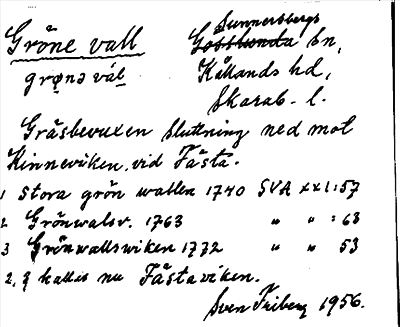 Gröne vall
grøna väl
Sunnersbergs
Gösslunda sn,
Kållands hd,
Skarab. l.
Gräsbevuxen sluttning ned mot
Kinneviken, vid Fästa.
1 Stora grön wallen 1740 SVA xx1:57
2 Grönwalsv. 1763 " " : 63
3 Grönwallswiken 1772 " " 53
2, 3 kallas nu Fästaviken.
Sven Friberg 1956.